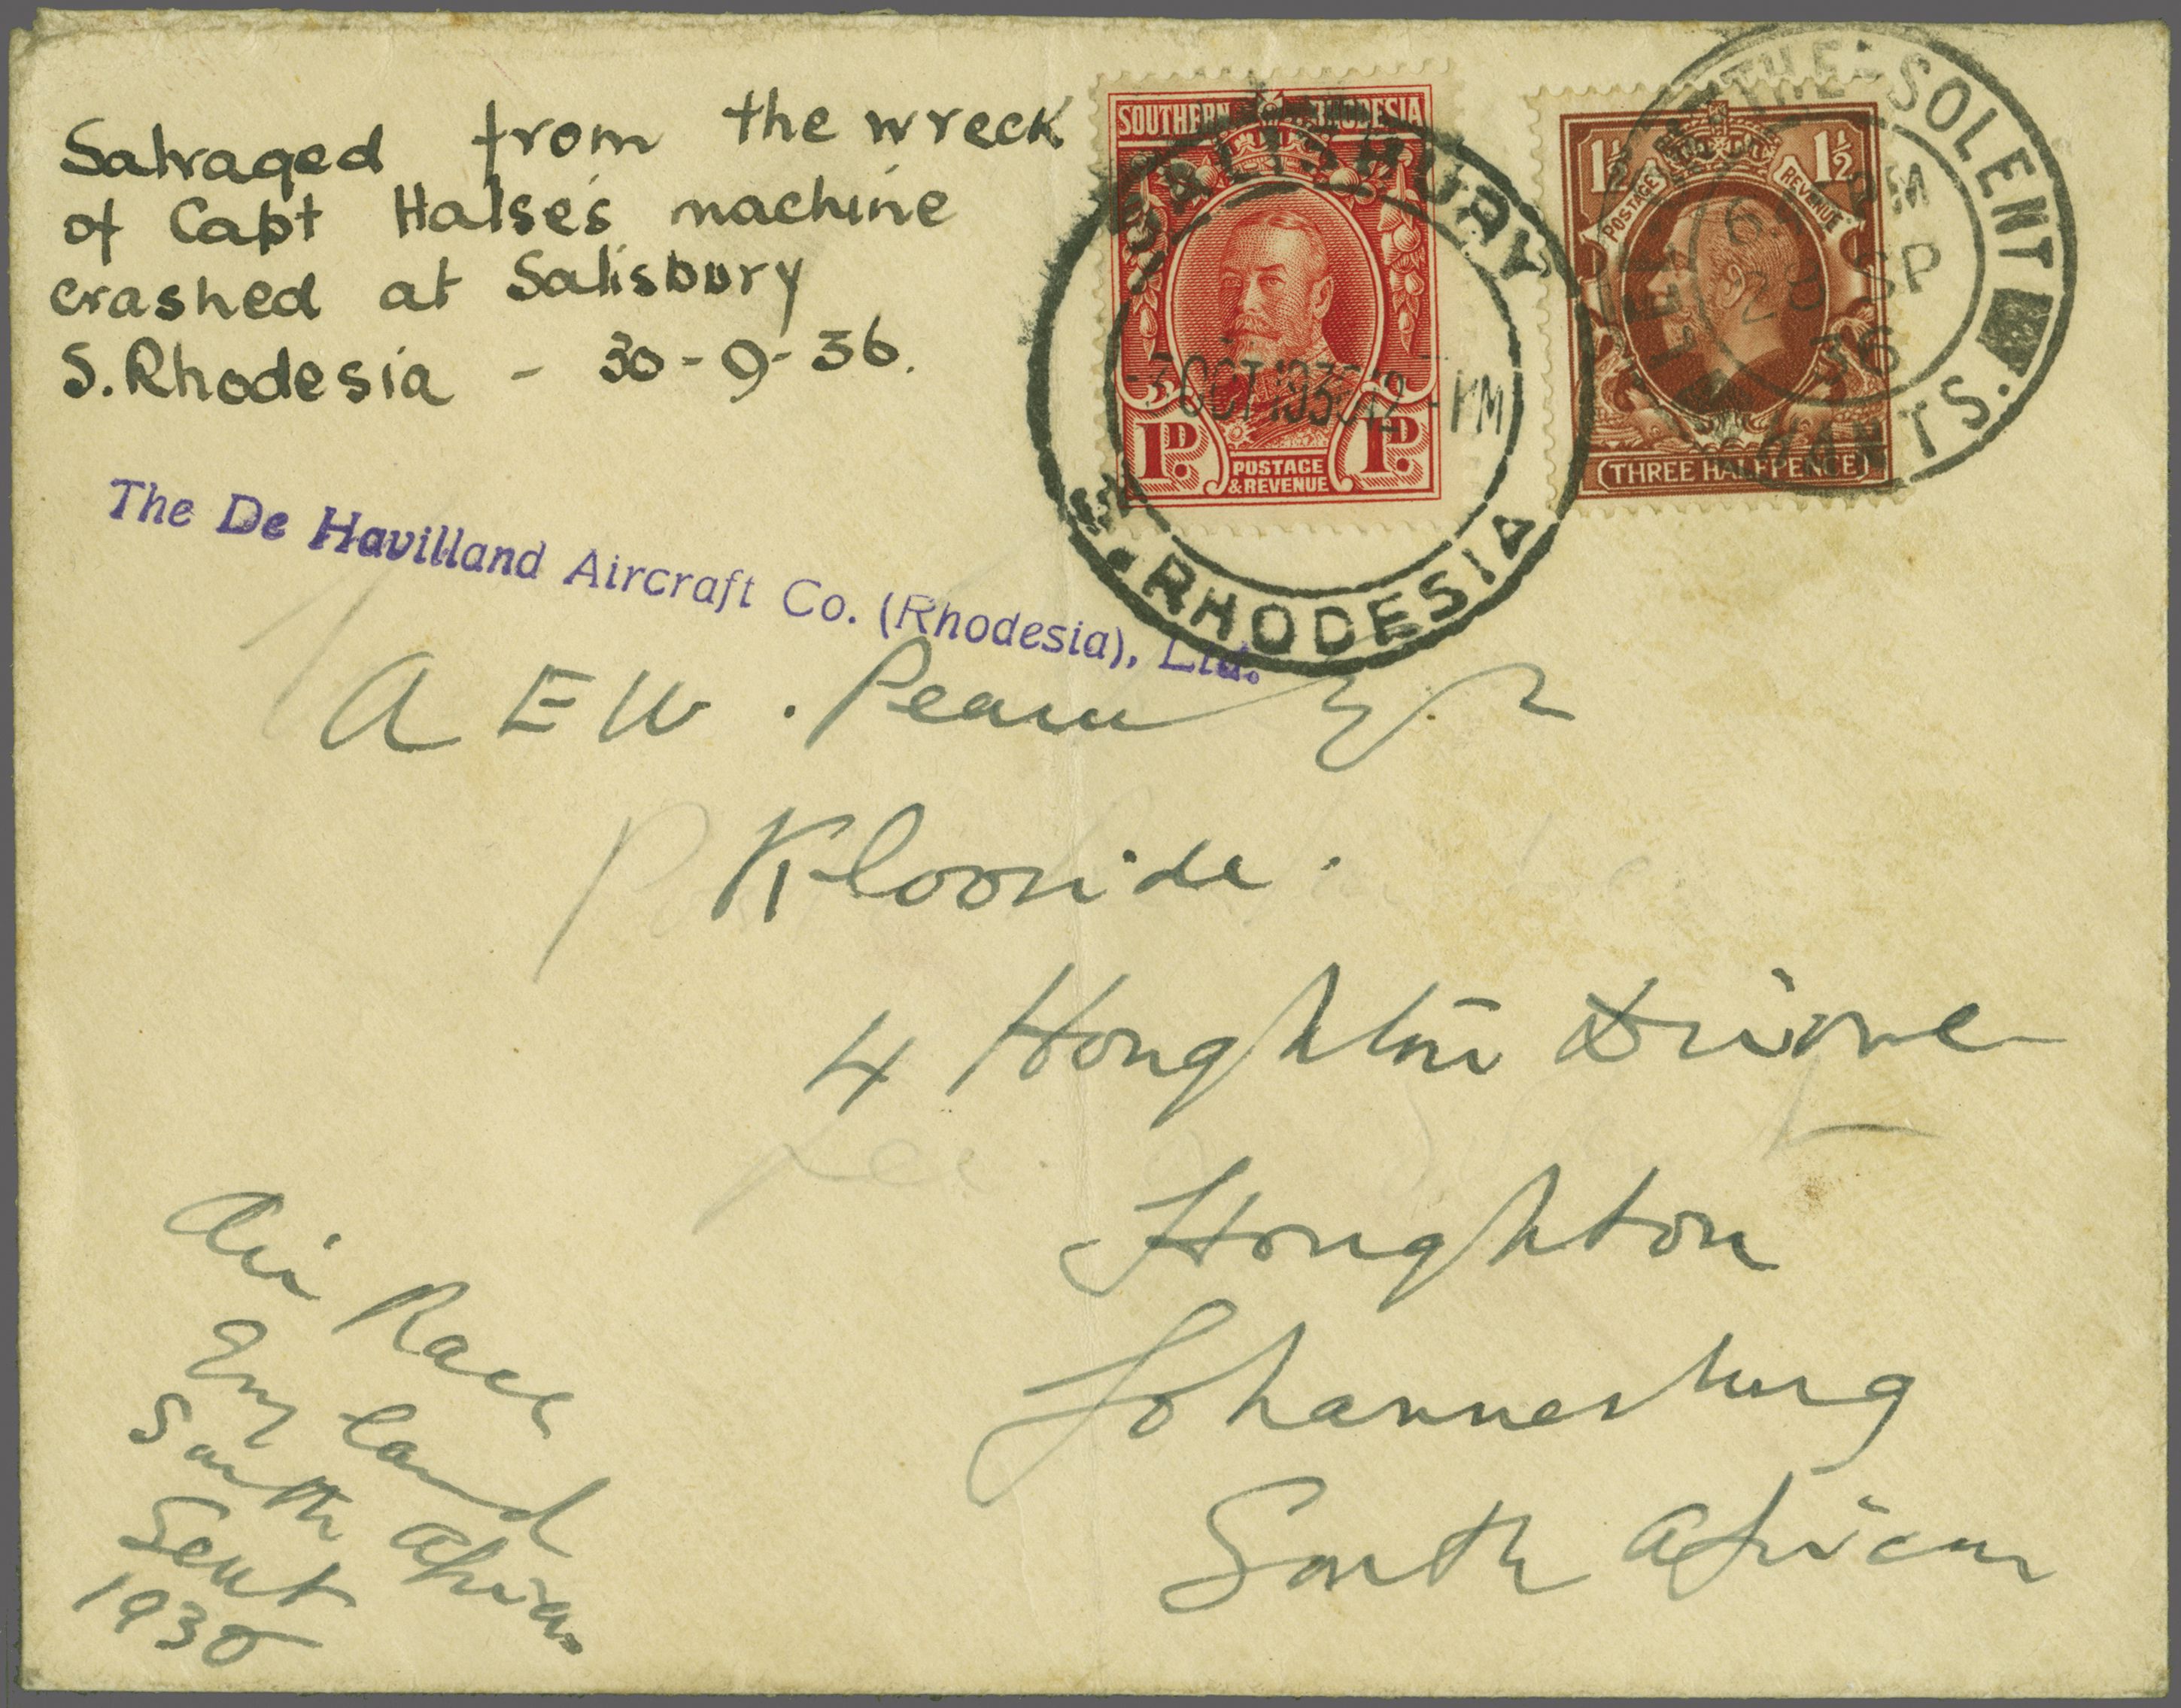 Salvaged from the wreck
of Capt Halse's machine
crashed at Salisbury
S. Rhodesia - 30-9-36.
SOUTHERN RHODESIA
1D. 1D.
POSTAGE
& REVENUE
SALISBURY
-3 OCT 1936 12 - PM
S. RHODESIA
1½ 1½
POSTAGE REVENUE
THREE HALFPENCE
LEE-ON-THE-SOLENT
PM
28 SP
36
HANTS.
The De Havilland Aircraft Co. (Rhodesia), Ltd.
A E W. Esqr
Kloofside.
4 Houghton Drive
Houghton
Johannesburg
South Africa
Air Race
England
South Africa
Sept
1936